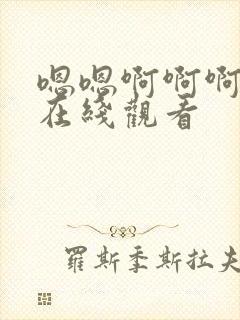 嗯嗯啊啊啊
在綫觀看
羅斯季斯拉夫